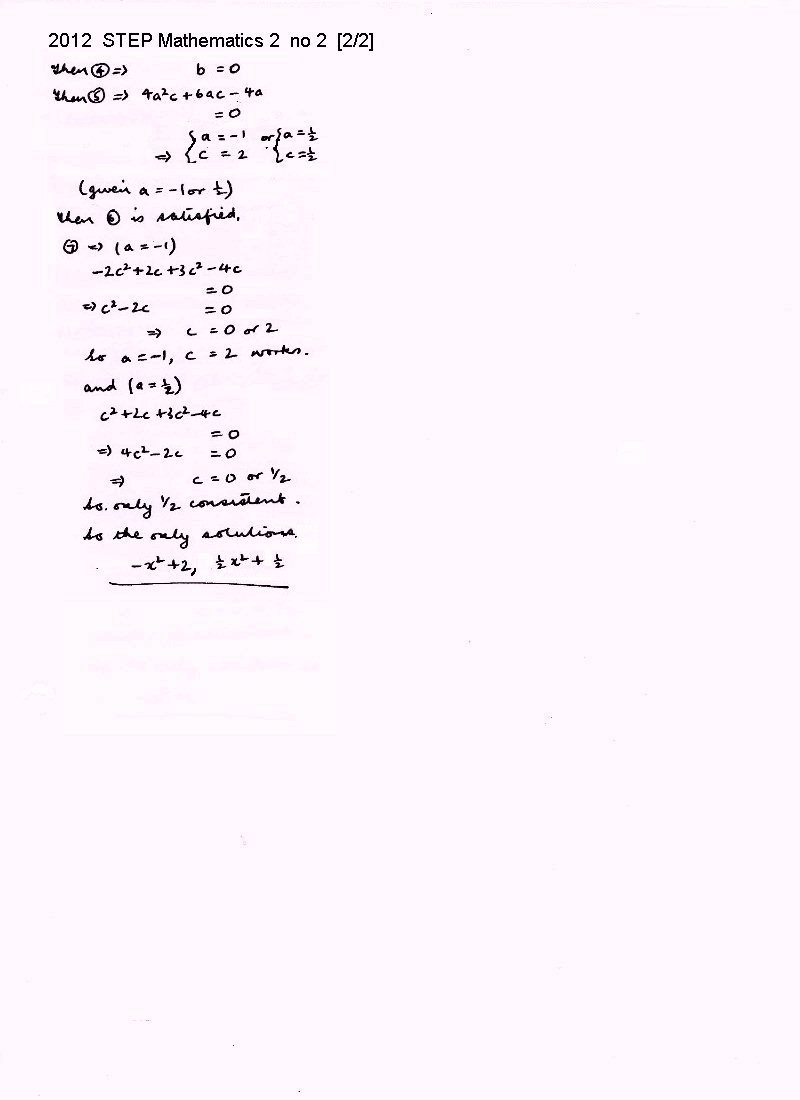 2012 STEP Mathematics 2 no 2 [2/2]
then ④ => b = 0
then ⑤ => 4a²c + 6ac - 4a
= 0
=> { a = -1 c = 2 or { a = ½ c = ½
(given a = -1 or ½)
then ⑥ is satisfied.
⑦ => (a = -1)
-2c² + 2c + 3c² - 4c
= 0
=> c² - 2c = 0
=> c = 0 or 2
So a = -1, c = 2 works.
and (a = ½)
c² + 2c + 3c² - 4c
= 0
=> 4c² - 2c = 0
=> c = 0 or 1/2
So. only 1/2 consistent.
So the only solutions.
-x² + 2, ½x² + ½